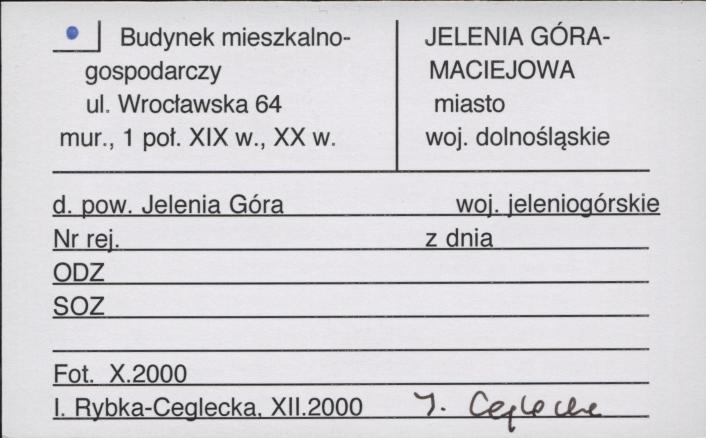 Budynek mieszkalno-
gospodarczy
ul. Wrocławska 64
mur., 1 poł. XIX w., XX w.
JELENIA GÓRA-
MACIEJOWA
miasto
woj. dolnośląskie
d. pow. Jelenia Góra woj. jeleniogórskie
Nr rej. z dnia
ODZ
SOZ
Fot. X.2000
I. Rybka-Ceglecka, XII.2000 I. Ceglecka